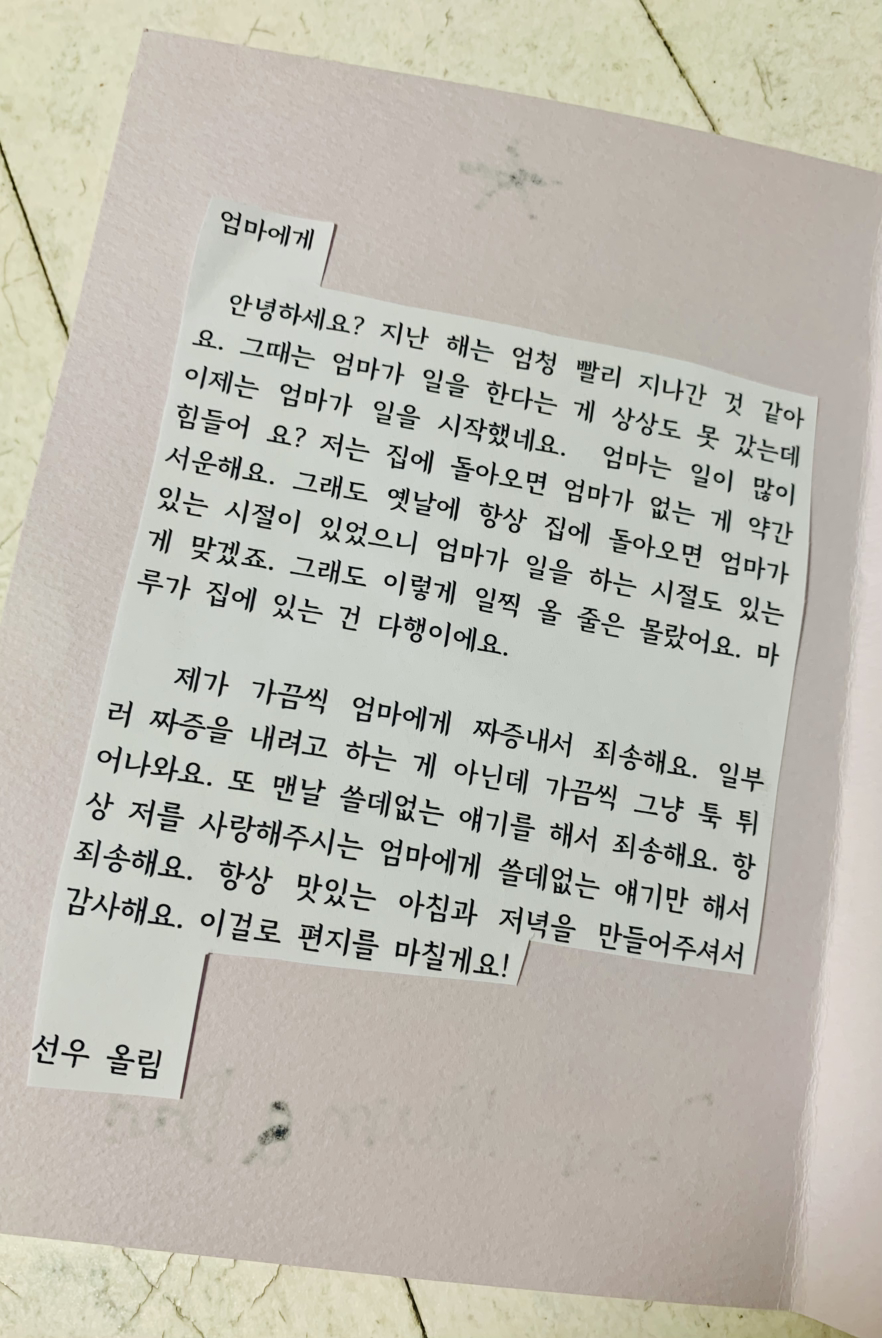 엄마에게
안녕하세요? 지난 해는 엄청 빨리 지나간 것 같아
요. 그때는 엄마가 일을 한다는 게 상상도 못 갔는데
이제는 엄마가 일을 시작했네요. 엄마는 일이 많이
힘들어 요? 저는 집에 돌아오면 엄마가 없는 게 약간
서운해요. 그래도 옛날에 항상 집에 돌아오면 엄마가
있는 시절이 있었으니 엄마가 일을 하는 시절도 있는
게 맞겠죠. 그래도 이렇게 일찍 올 줄은 몰랐어요. 마
루가 집에 있는 건 다행이에요.
제가 가끔씩 엄마에게 짜증내서 죄송해요. 일부
러 짜증을 내려고 하는 게 아닌데 가끔씩 그냥 툭 튀
어나와요. 또 맨날 쓸데없는 얘기를 해서 죄송해요. 항
상 저를 사랑해주시는 엄마에게 쓸데없는 얘기만 해서
죄송해요. 항상 맛있는 아침과 저녁을 만들어주셔서
감사해요. 이걸로 편지를 마칠게요!
선우 올림